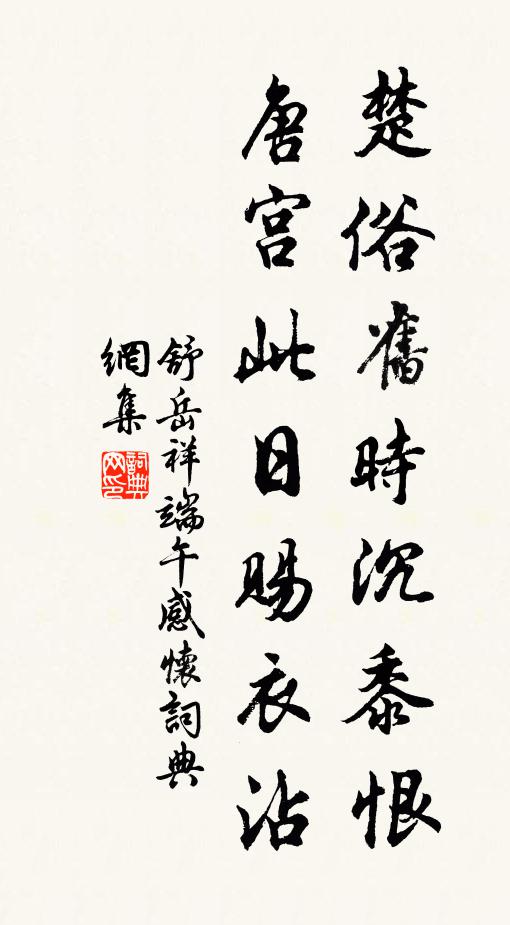 楚俗舊時沉黍恨
唐宮此日賜衣沾
舒岳祥端午感懷詞典
網集
詞典網印